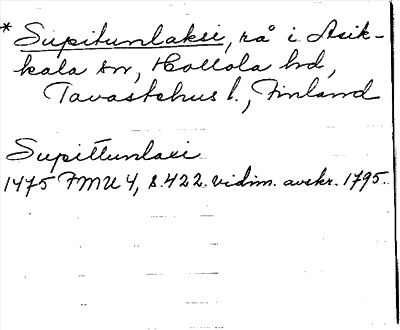 * Supitunlaksi, rå i Asik-
kala sn, Hollola hd,
Tavastehus l., Finland
Supittunlaxi
1475 FMU 4, s. 422. vidim. avskr. 1795.